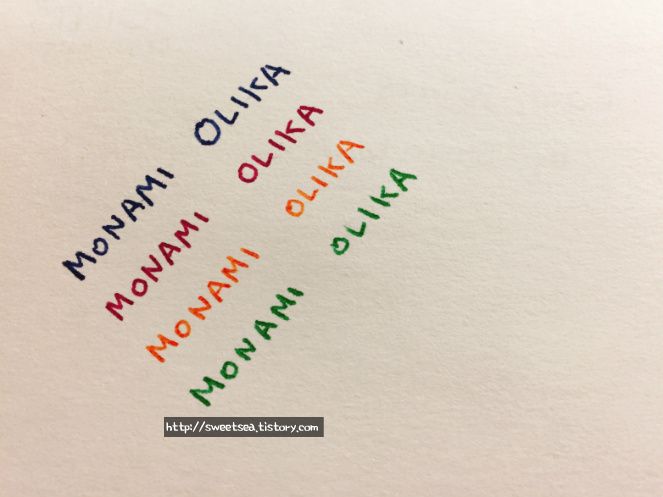 MONAMI OLIKA
MONAMI OLIKA
MONAMI OLIKA
MONAMI OLIKA
http://sweetsea.tistory.com